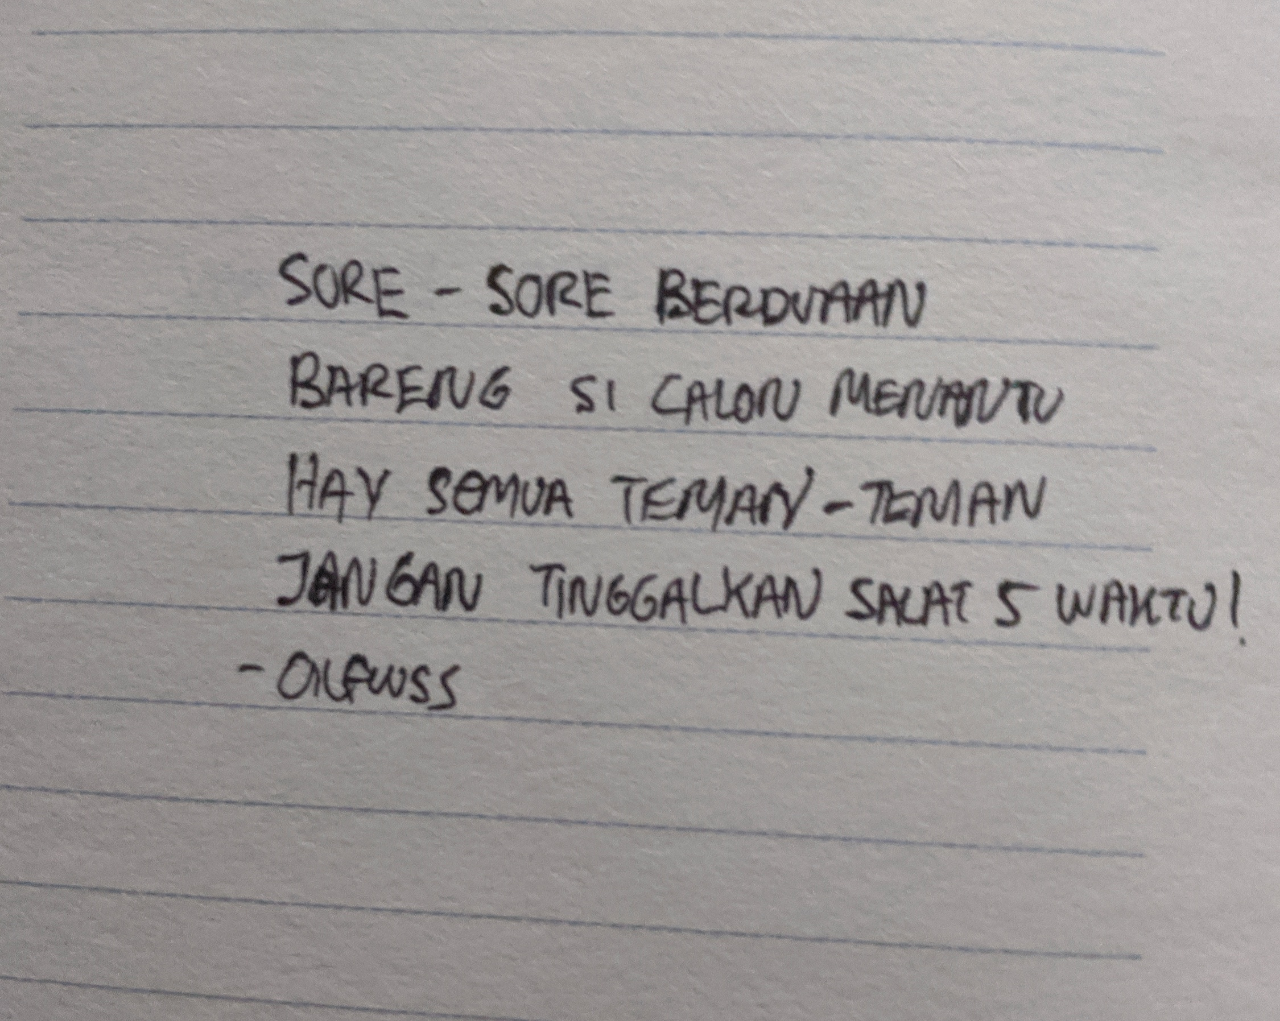 SORE - SORE BERDUAAN
BARENG SI CALON MENANTU
HAY SEMUA TEMAN - TEMAN
JANGAN TINGGALKAN SALAT 5 WAKTU!